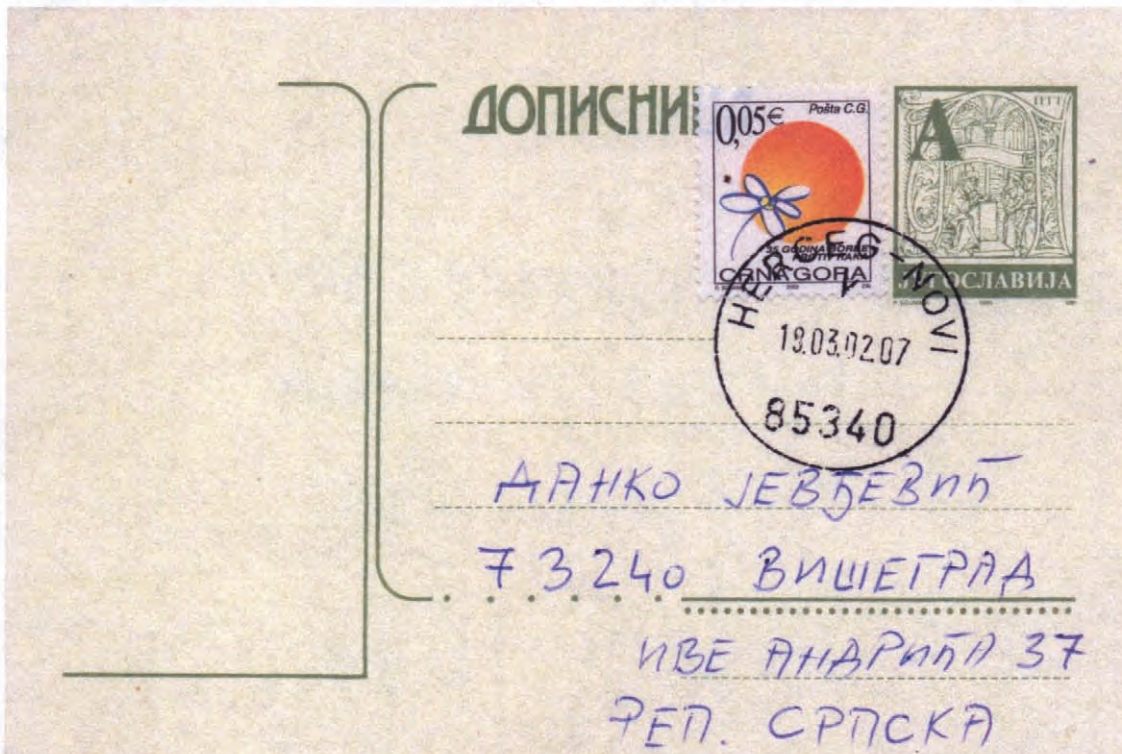 ДОПИСНИ
0,05€
Pošta C.G.
35 GODINA BORBE
PROTIV RAKA
CRNA GORA
A
ЈУГОСЛАВИЈА
HERCEG-NOVI
V
18.03.02.07
85340
ДАНКО ЈЕВЂЕВИЋ
73240 ВИШЕГРАД
ИВЕ АНДРИЋА 37
РЕП. СРПСКА